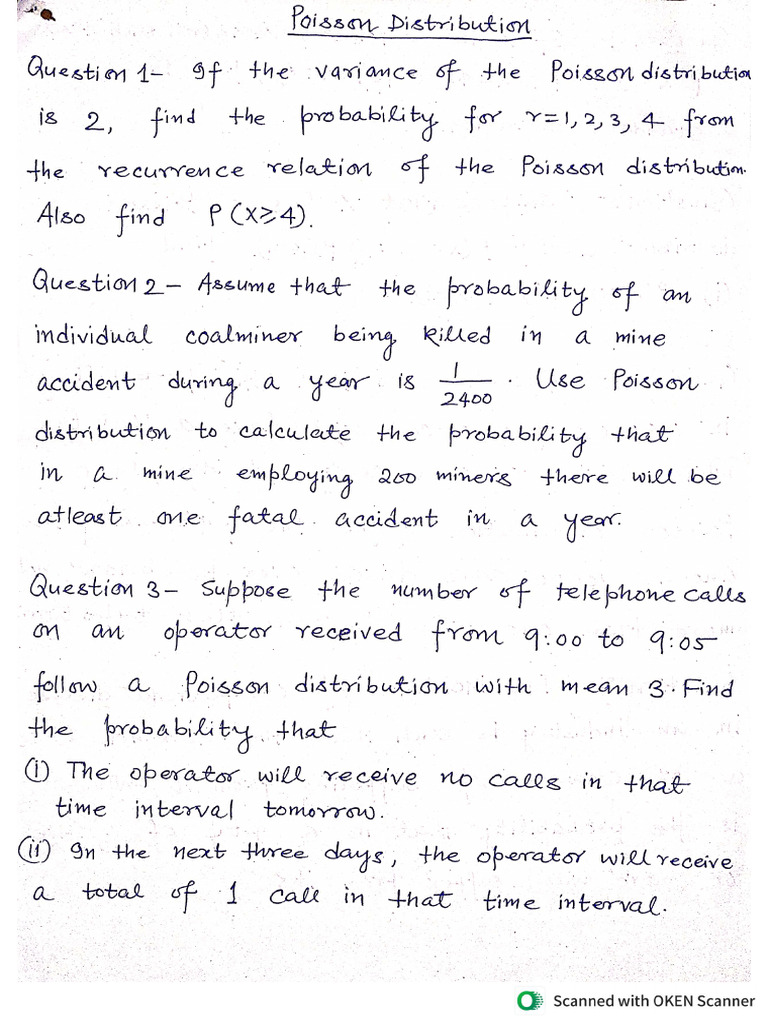 Poisson Distribution
Question 1- If the variance of the Poisson distribution
is 2, find the probability for r=1, 2, 3, 4 from
the recurrence relation of the Poisson distribution.
Also find P(X⩾4).
Question 2- Assume that the probability of an
individual coalminer being killed in a mine
accident during a year is 1/2400. Use Poisson
distribution to calculate the probability that
in a mine employing 200 miners there will be
atleast one fatal accident in a year.
Question 3- Suppose the number of telephone calls
on an operator received from 9:00 to 9:05
follow a Poisson distribution with mean 3. Find
the probability that
(i) The operator will receive no calls in that
time interval tomorrow.
(ii) In the next three days, the operator will receive
a total of 1 call in that time interval.
Scanned with OKEN Scanner